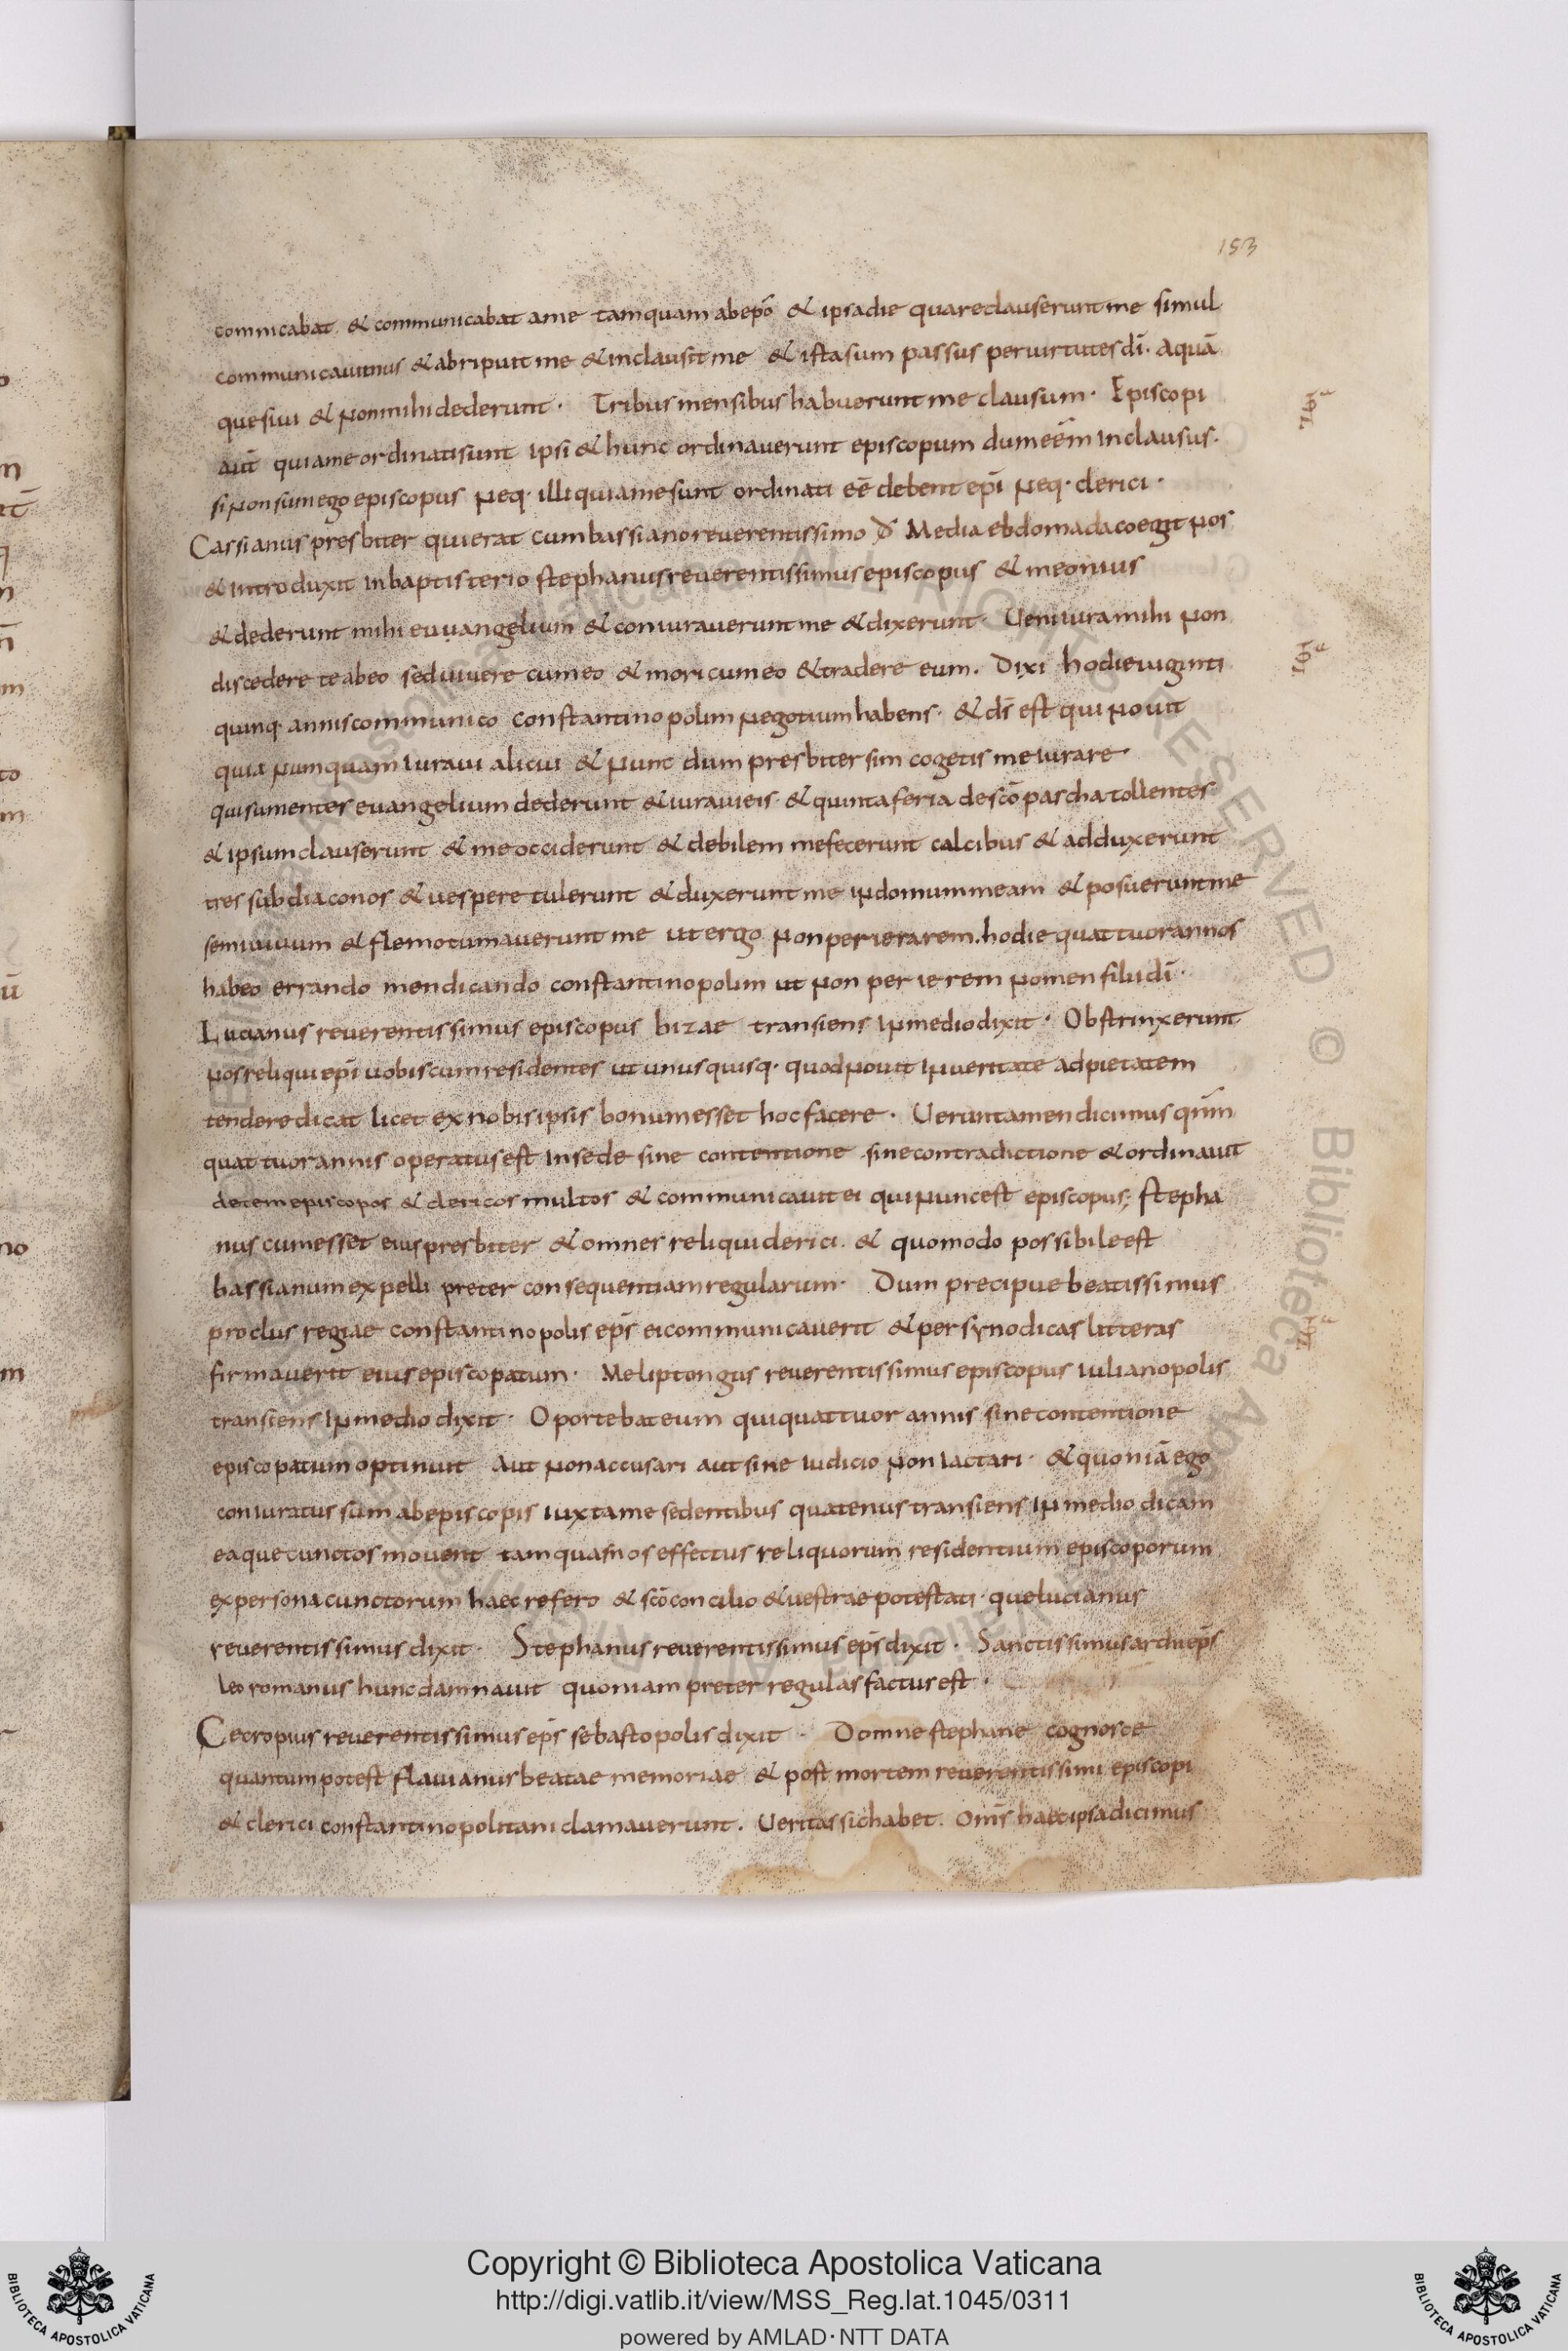 153
commicabat. & communicabat ame tamquam abep̄o & ipsadie quareclauserunt me simul
communicauimus & abripuit me & inclausit me & istasum passus peruirtutes dī. aquā
quesiui & nonmihi dederunt. Tribus mensibus habuerunt me clausum. Episcopi
aut̄ qui ame ordinati sunt ipsi & hunc ordinauerunt episcopum dum eēm inclausus.
si non sum ego episcopus neq. illi qui ame sunt ordinati eē debent ep̄i neq. clerici.
Cassianus presbiter qui erat cum bassiano reuerentissimo d̄ Media ebdomada coegit nos
& introduxit in baptisterio stephanus reuerentissimus episcopus & meonius
& dederunt mihi euuangelium & coniurauerunt me & dixerunt. Ueni iura mihi non
discedere te abeo sed uiuere cum eo & mori cum eo & tradere eum. Dixi hodie uiginti
quinq. annis communico constantinopolim negotium habens. & ds̄ est qui nouit
quia numquam iuraui alicui & nunc dum presbiter sim cogetis me iurare.
qui sumentes euangelium dederunt & iuraui eis. & quinta feria de scō pascha tollentes
& ipsum clauserunt & me occiderunt & debilem me fecerunt calcibus & adduxerunt
tres subdiaconos & uespere tulerunt & duxerunt me in domum meam & posuerunt me
semiuiuum & flemotumauerunt me ut ergo non perierarem. hodie quattuor annos
habeo errando mendicando constantinopolim ut non perierem nomen filii dī.
Lucianus reuerentissimus episcopus bizae transiens in medio dixit. Obstrinxerunt
nos reliqui ep̄i uobiscum residentes ut unusquisq. quod nouit in ueritate ad pietatem
tendere dicat licet ex nobis ipsis bonum esset hoc facere. Ueruntamen dicimus qnm̄
quattuor annis operatus est in sede sine contentione sine contradictione & ordinauit
decem episcopos & clericos multos & communicauit ei qui nunc est episcopus; stepha
nus cum esset eius presbiter & omnes reliqui clerici. & quomodo possibile est
bassianum expelli preter consequentiam regularum. Dum precipue beatissimus
proclus regiae constantinopolis ep̄s ei communicauerit & per synodicas litteras
firmauerit eius episcopatum. Meliptongus reuerentissimus episcopus iulianopolis
transiens in medio dixit. Oportebat eum qui quattuor annis sine contentione
episcopatum optinuit aut non accusari aut sine iudicio non iactari. & quoniā ego
coniuratus sum ab episcopis iuxta me sedentibus quatenus transiens in medio dicam
ea que cunctos mouent tamquam os effectus reliquorum residentium episcoporum
ex persona cunctorum haec refero & scō concilio & uestrae potestati. que lucianus
reuerentissimus dixit. Stephanus reuerentissimus ep̄s dixit. Sanctissimus archiep̄s
leo romanus hunc damnauit quoniam preter regulas factus est.
Cecropius reuerentissimus ep̄s sebastopolis dixit. Domne stephane cognosce
quantum potest flauianus beatae memoriae & post mortem reuerentissimi episcopi
& clerici constantinopolitani clamauerunt. Ueritas sic habet. Omīs haec ipsa dicimus
Copyright © Biblioteca Apostolica Vaticana
http://digi.vatlib.it/view/MSS_Reg.lat.1045/0311
powered by AMLAD·NTT DATA
BIBLIOTECA APOSTOLICA VATICANA
BIBLIOTECA APOSTOLICA VATICANA